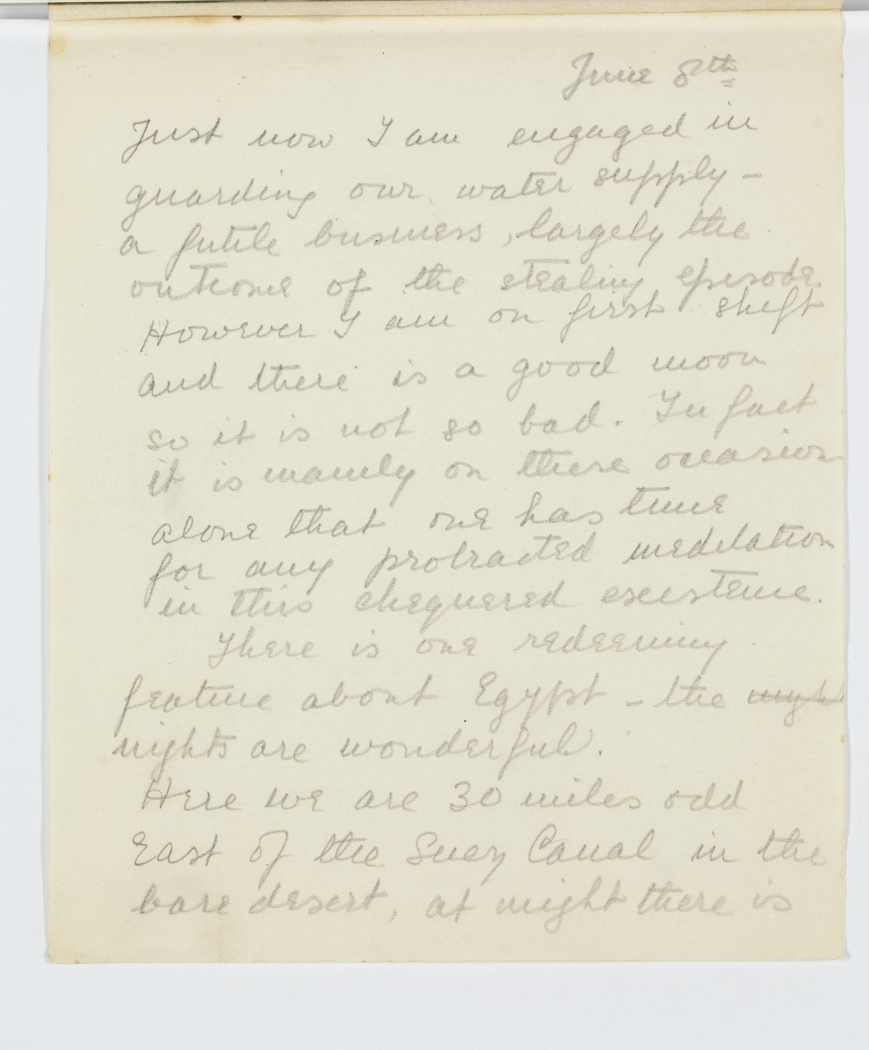 June 8th
Just now I am engaged in
guarding our water supply –
a futile business, largely the
outcome of the stealing episode
However I am on first shift
and there is a good moon
so it is not so bad. In fact
it is mainly on these occasions
alone that one has time
for any protracted meditation
in this chequered existence.
There is one redeeming
feature about Egypt – the night
nights are wonderful.
Here we are 30 miles odd
East of the Suez Canal in the
bare desert, at night there is